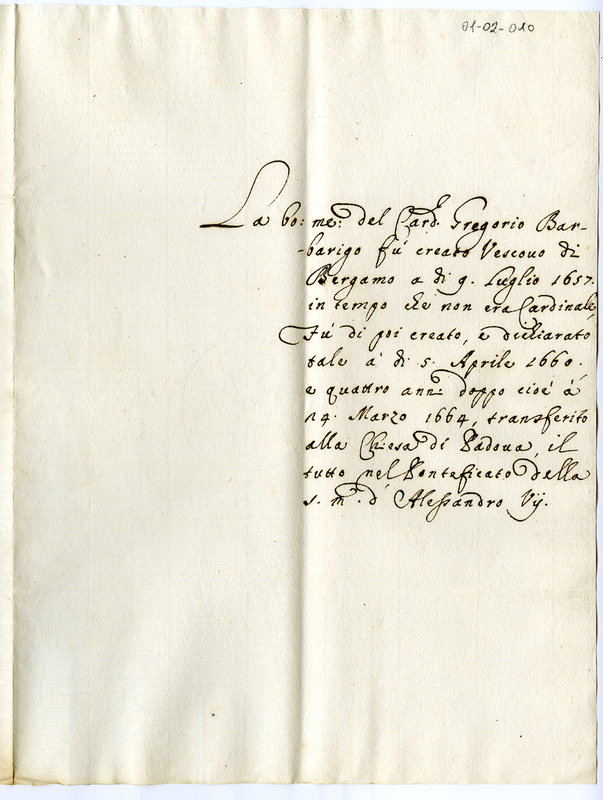 01-02-010
La bo: me: del Card. Gregorio Bar-
-barigo fù creato Vescouo di
Bergamo a di 9. Luglio 1657.
in tempo che non era Cardinale,
Fù di poi creato, e dichiarato
tale à di 5. Aprile 1660.
e quattro anni doppo cioè à
14. Marzo 1664, transferito
alla Chiesa di Padoua, il
tutto nel Pontificato della
s. m. d'Alessandro Vij.